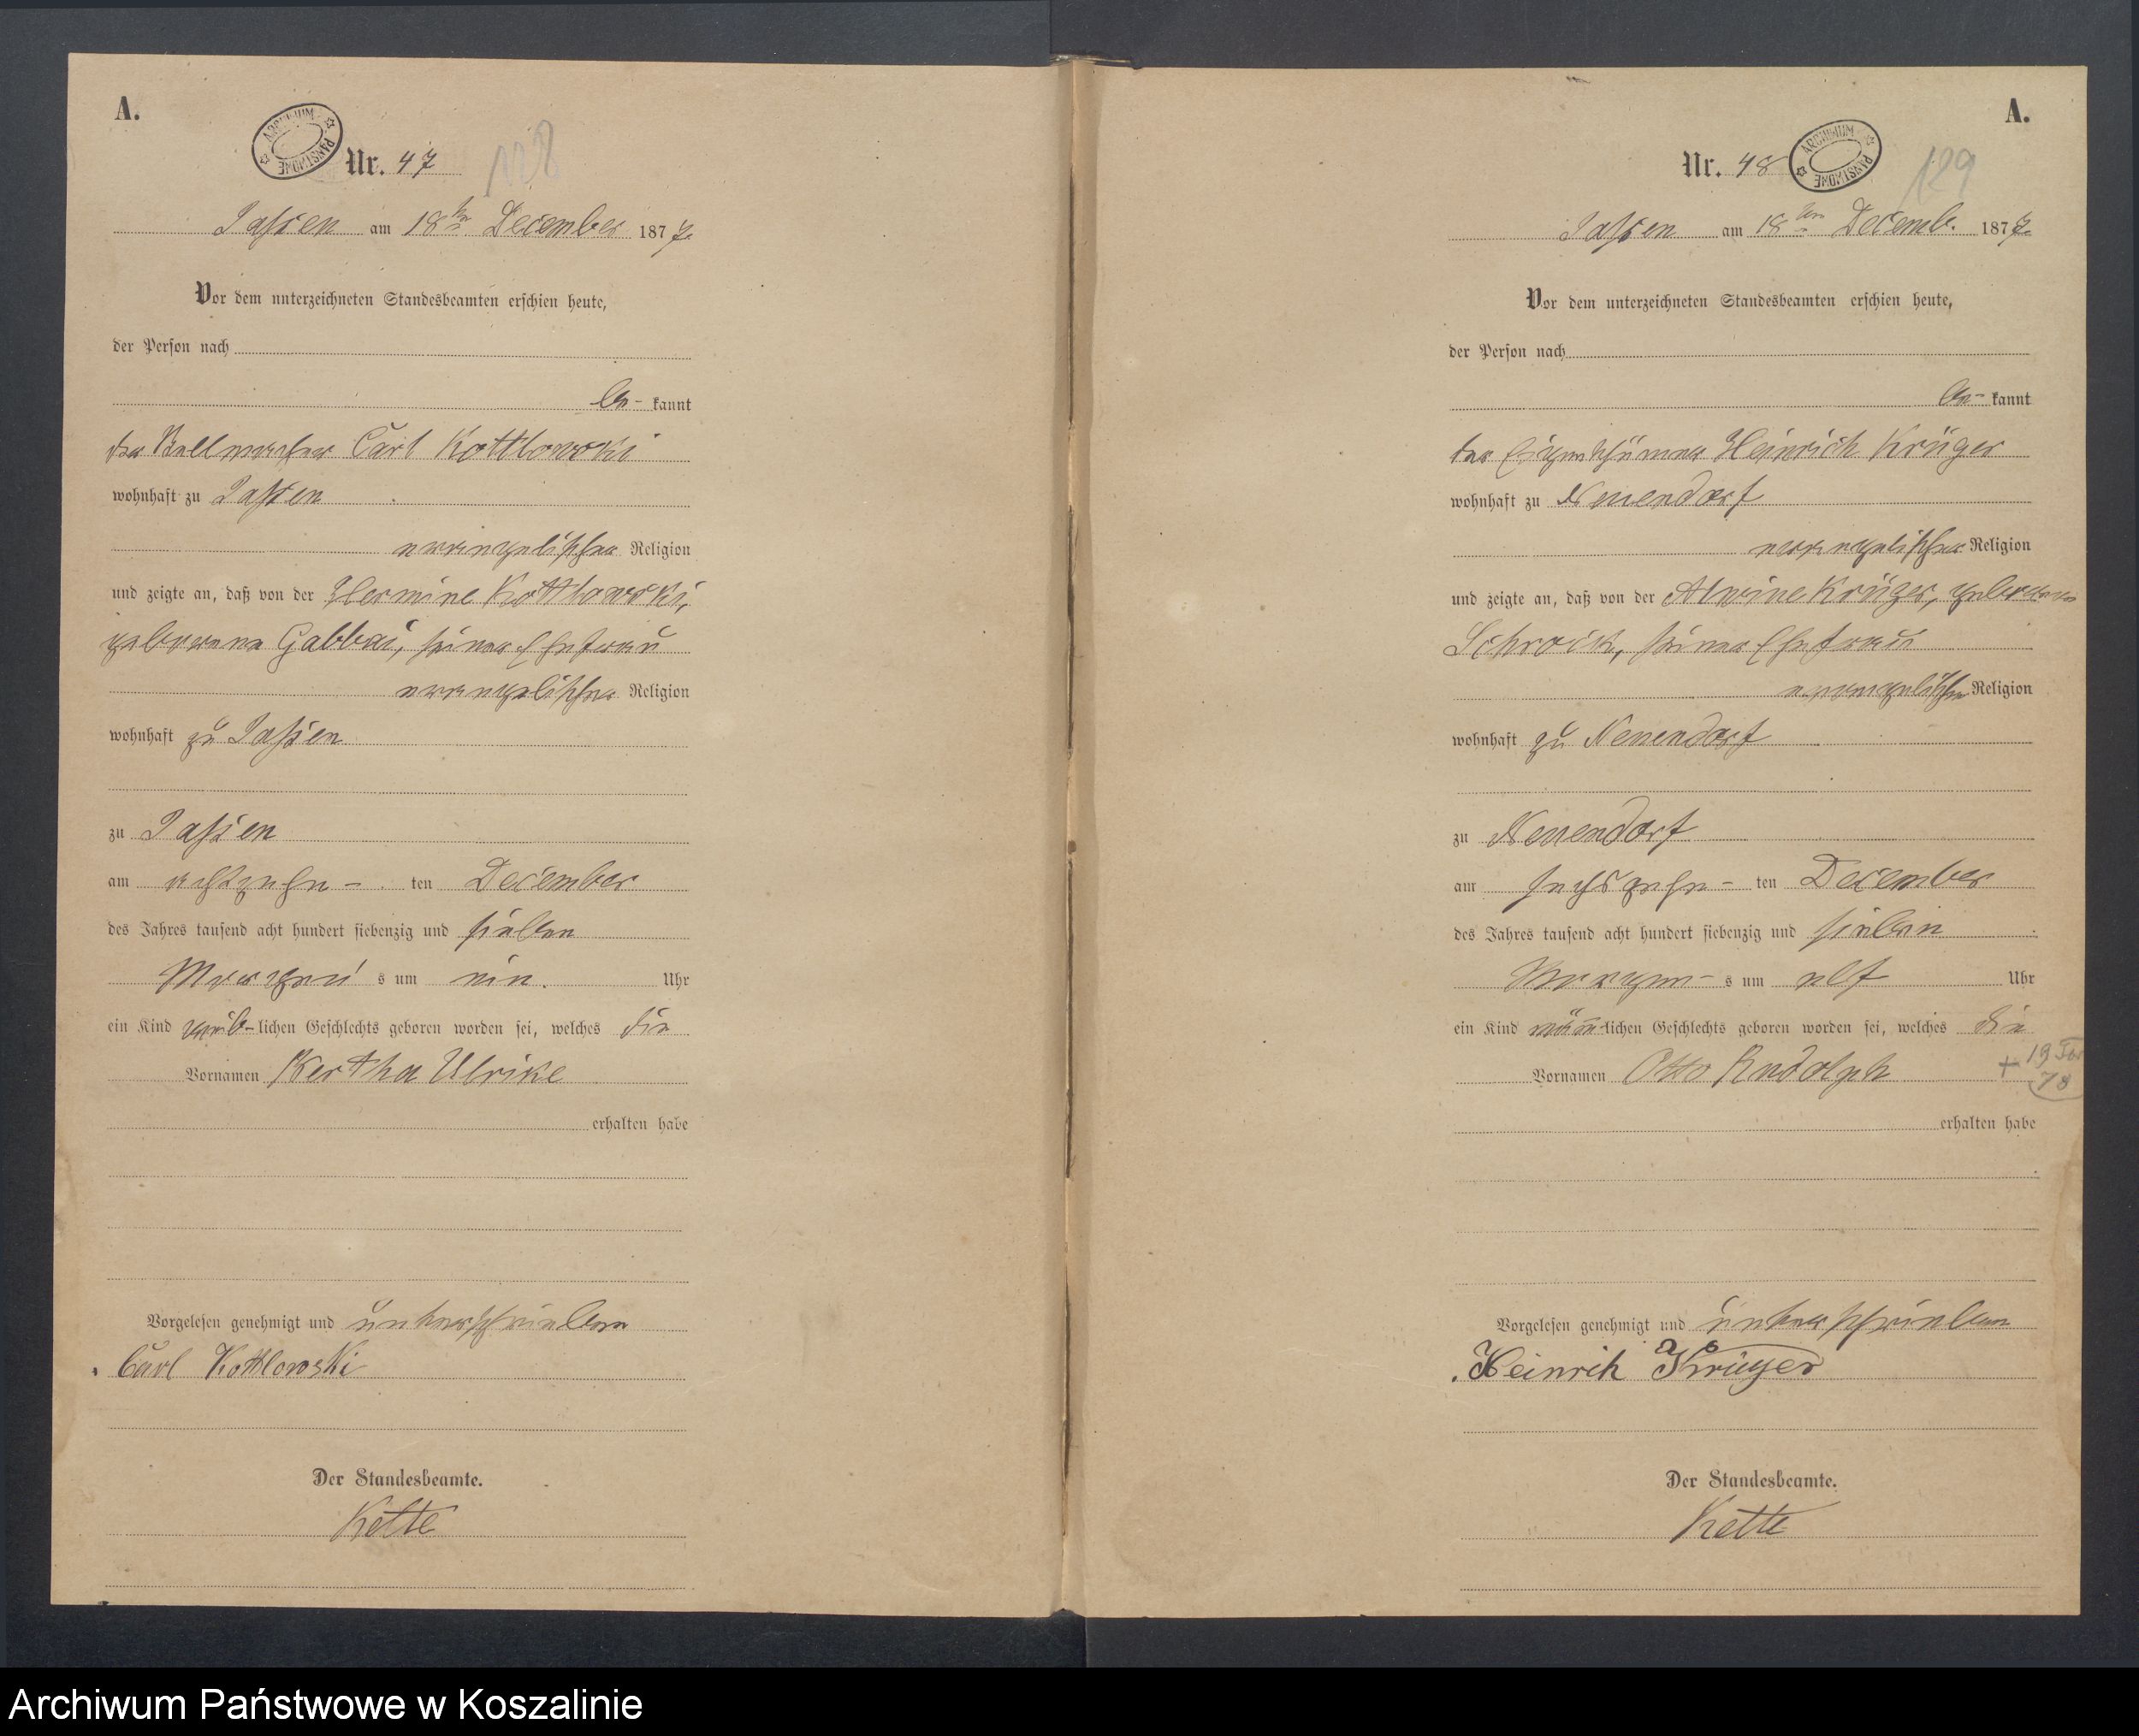 A.
ARCHIWUM PAŃSTWOWE
Nr. 47
128
Jassen am 18ten December 1877.
Vor dem unterzeichneten Standesbeamten erschien heute,
der Person nach
be- kannt
der Stellmacher Carl Kottlowski
wohnhaft zu Jassen
evangelischer Religion
und zeigte an, daß von der Hermine Kottlowski,
geborene Gabbei, seiner Ehefrau
evangelischer Religion
wohnhaft zu Jassen
zu Jassen
am achtzehn- ten December
des Jahres tausend acht hundert siebenzig und sieben
Morgens um ein Uhr
ein Kind weib-lichen Geschlechts geboren worden sei, welches die
Vornamen Bertha Ulrike
erhalten habe
Vorgelesen genehmigt und unterschrieben
Carl Kottlowski
Der Standesbeamte.
Kette
A.
Nr. 48
ARCHIWUM PAŃSTWOWE
129
Jassen am 18ten Decemb. 1877.
Vor dem unterzeichneten Standesbeamten erschien heute,
der Person nach
be- kannt
der Eigenthümer Heinrich Krüger
wohnhaft zu Neuendorf
evangelischer Religion
und zeigte an, daß von der Alwine Krüger, geborene
Schrock, seiner Ehefrau
evangelischer Religion
wohnhaft zu Neuendorf
zu Neuendorf
am sechszehn- ten December
des Jahres tausend acht hundert siebenzig und sieben
Morgen- s um elf Uhr
ein Kind männ-lichen Geschlechts geboren worden sei, welches die
Vornamen Otto Rudolph
+ 19
78
erhalten habe
Vorgelesen genehmigt und unterschrieben
Heinrih Krüger
Der Standesbeamte.
Kette
Archiwum Państwowe w Koszalinie